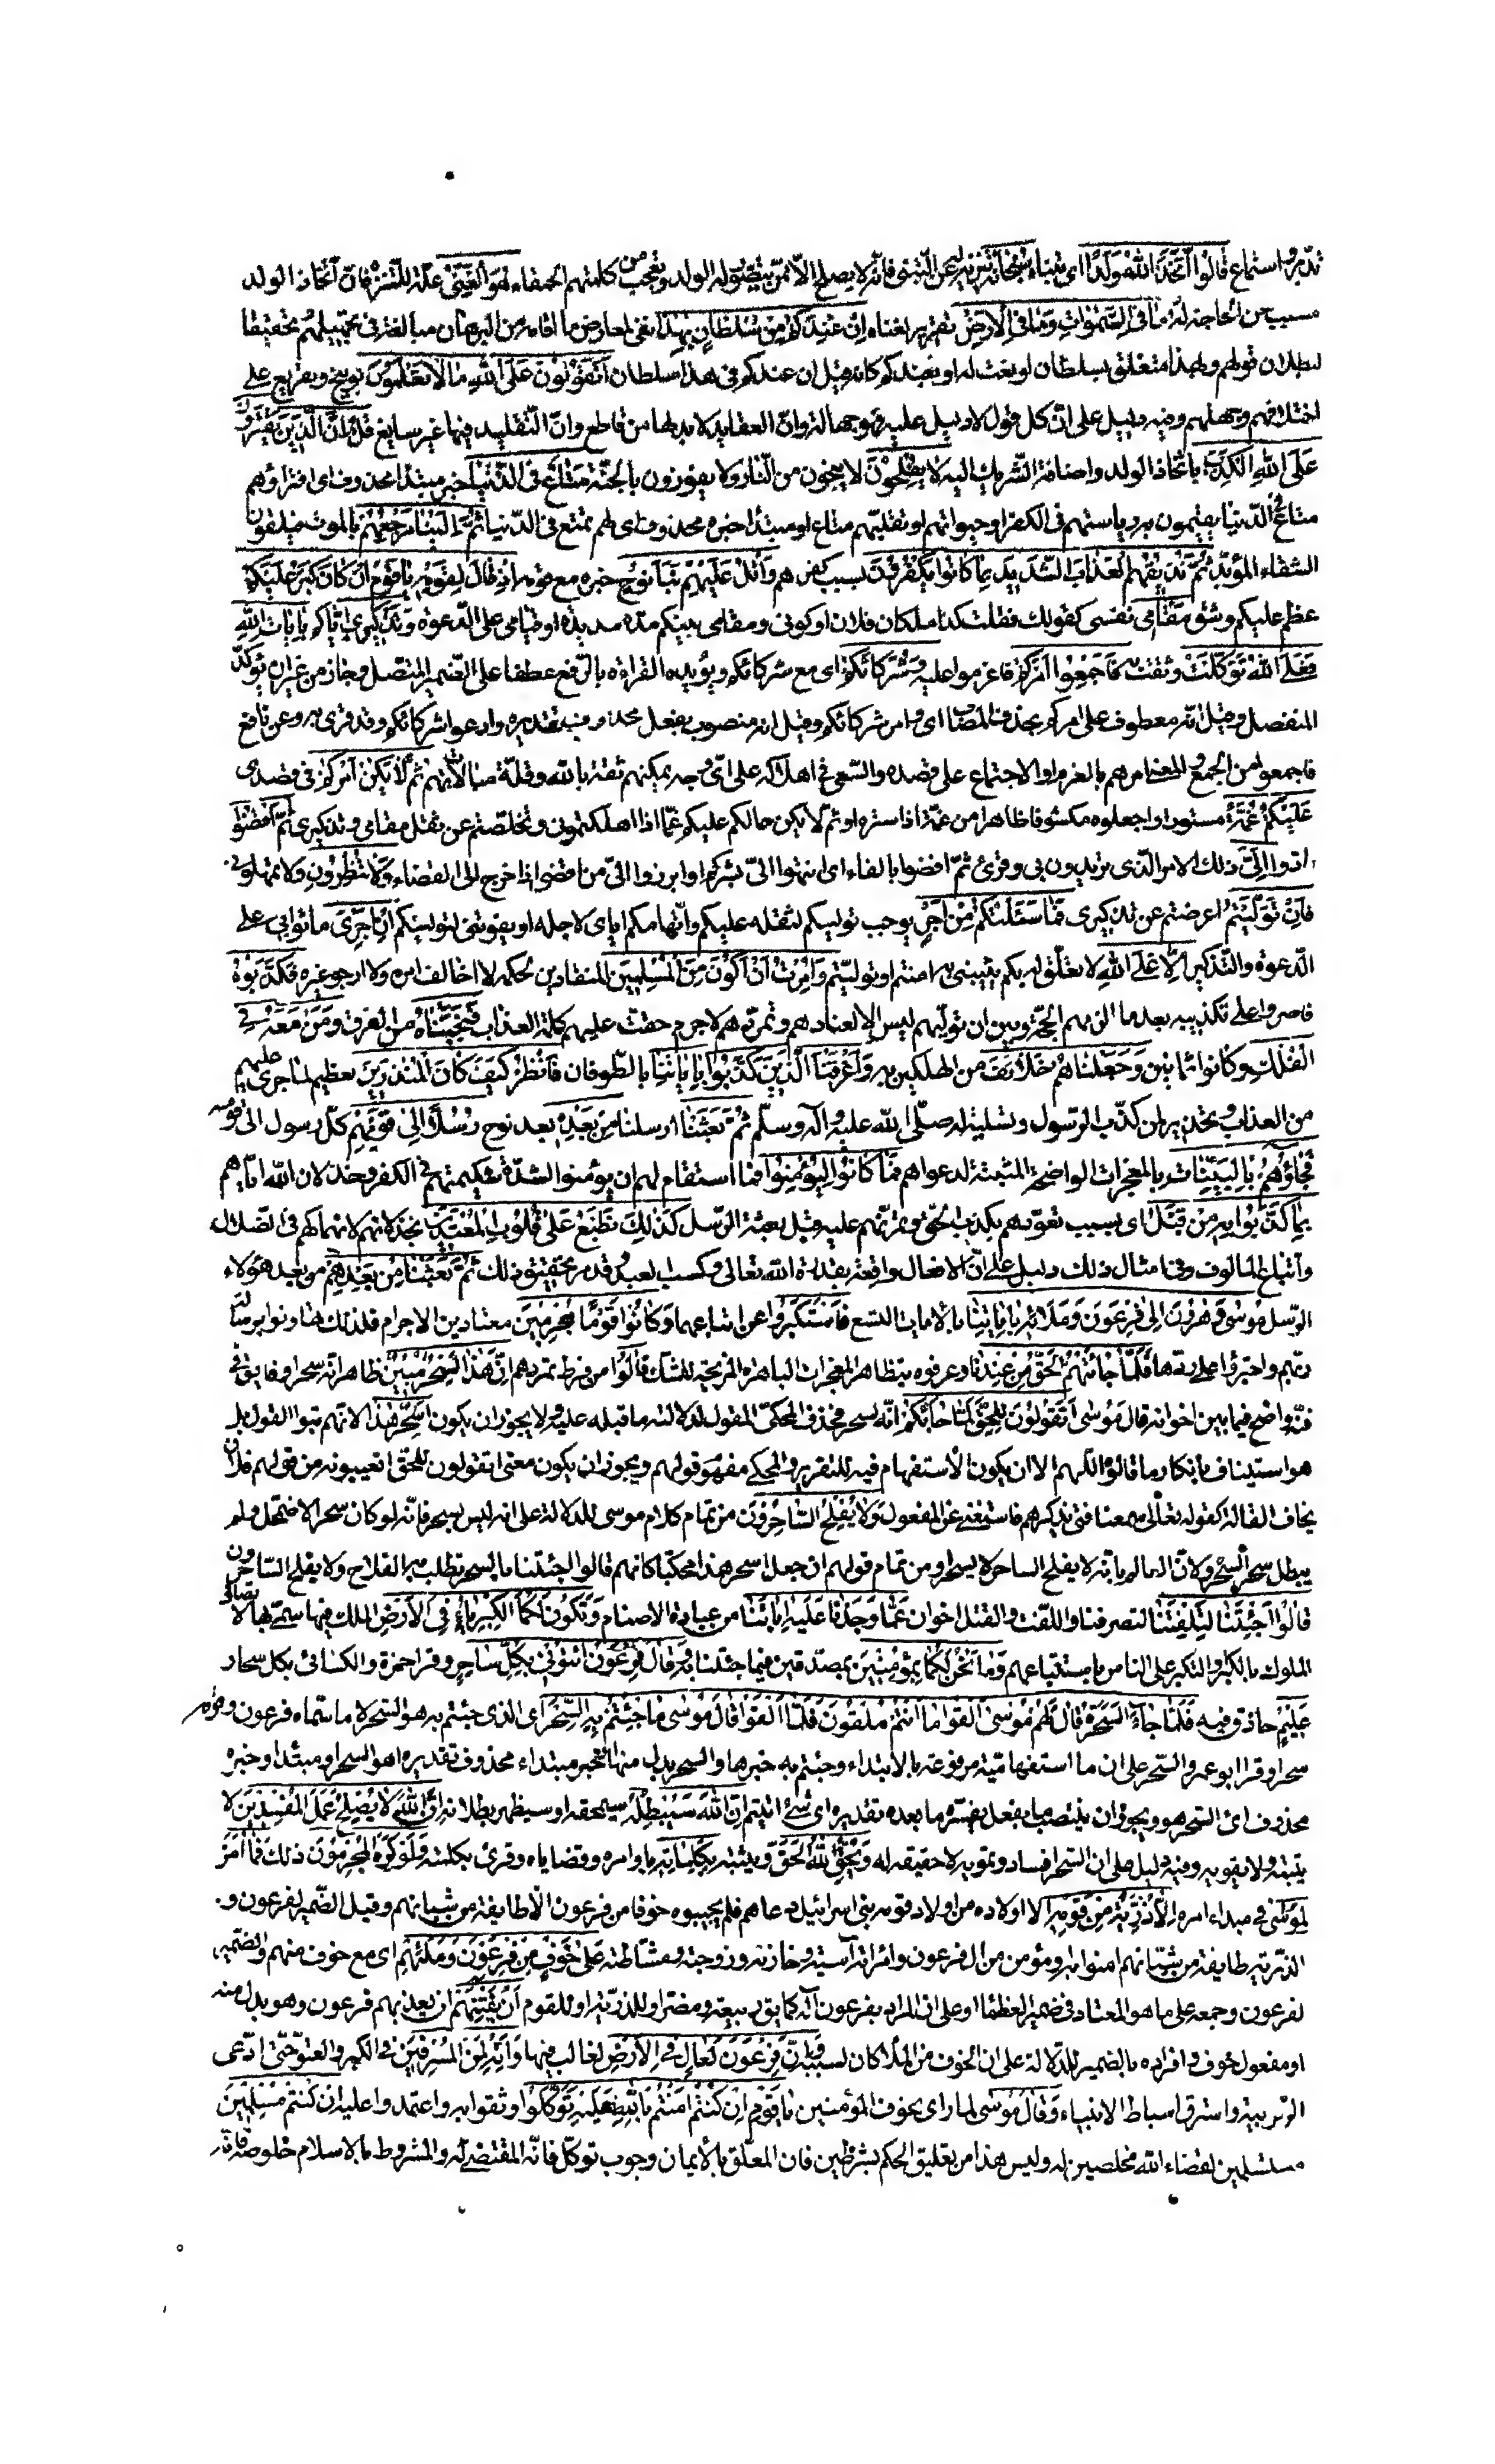 تدبر واستماع قالوا اتخذ الله ولدا اى تبناه سبحانه تنزيه له عن التبنى فانه لا يصلح الا ممن يتصور له الولد وتعجب من كلمتهم الحمقاء هو الغنى علة للتنزه فان اتخاذ الولد
مسبب عن الحاجة له ما فى السموات وما فى الارض تقرير لغناه ان عندكم من سلطان بهذا نفى لمعارض ما اقامه من البرهان مبالغة فى تجهيلهم تحقيقا
لبطلان قولهم وبهذا متعلق بسلطان او نعت له او بعندكم كانه قيل ان عندكم فى هذا سلطان اتقولون على الله ما لا تعلمون توبيخ وتقريع على
اختلاقهم وجهلهم وفيه دليل على ان كل قول لا دليل عليه فهو جهالة وان العقايد لا بد لها من قاطع وان التقليد فيها غير سايغ قل ان الذين يفترون
على الله الكذب باتخاذ الولد واضافة الشريك اليه لا يفلحون لا ينجون من النار ولا يفوزون بالجنة متاع فى الدنيا خبر مبتدا محذوف اى افتراؤهم
متاع فى الدنيا يقيمون به رياستهم فى الكفر او حيوتهم او تقلبهم متاع او مبتدا خبره محذوف اى لهم تمتع فى الدنيا ثم الينا مرجعهم بالموت فيلقون
الشقاء المؤبد ثم نذيقهم العذاب الشديد بما كانوا يكفرون بسبب كفرهم واتل عليهم نبا نوح خبره مع قومه اذ قال لقومه يا قوم ان كان كبر عليكم
عظم عليكم وشق مقامى نفسى كقولك فعلت كذا لمكان فلان او كونى ومقامى بينكم مدة مديدة او قيامى على الدعوة وتذكيرى اياكم بايات الله
فعلى الله توكلت وثقت به فاجمعوا امركم فاعزموا عليه وشركائكم اى مع شركائكم ويؤيده القراءة بالرفع عطفا على الضمير المتصل وجاز من غير ان يؤكد
المنفصل وقيل انه معطوف على امركم بحذف المضاف اى وامر شركائكم وقيل انه منصوب بفعل محذوف تقديره وادعوا شركائكم وقد قرئ به وعن نافع
فاجمعوا من الجمع والمعنى امرهم بالعزم او الاجتماع على قصده والسعى فى اهلاكه على اى وجه يمكنهم ثقة بالله وقلة مبالاة بهم ثم لا يكن امركم فى قصدى
عليكم غمة مستورا واجعلوه مكشوفا ظاهرا من غمه اذا ستره او ثم لا يكن حالكم عليكم غما اذا اهلكتمونى وتخلصتم عن ثقل مقامى وتذكيرى ثم اقضوا
ادوا الى ذلك الامر الذى تريدون بى وقرئ ثم افضوا بالفاء اى انتهوا الى بشركم او ابرزوا الى من افضى اذا خرج الى الفضاء ولا تنظرون ولا تمهلونى
فان توليتم اعرضتم عن تذكيرى فما سئلتكم من اجر يوجب توليكم لثقله عليكم واتهامكم اياى لاجله او يفوتنى لتوليكم ان اجرى ما ثوابى على
الدعوة والتذكير الا على الله لا تعلق له بكم يثيبنى به امنتم او توليتم وامرت ان اكون من المسلمين المنقادين لحكمه لا اخالف امره ولا ارجو غيره فكذبوه
فاصروا على تكذيبه بعد ما الزمهم الحجة وبين ان توليهم ليس الا لعنادهم وتمردهم لا جرم حقت عليهم كلمة العذاب فنجيناه من الغرق ومن معه فى
الفلك وكانوا ثمانين وجعلناهم خلائف من الهالكين به واغرقنا الذين كذبوا باياتنا بالطوفان فانظر كيف كان عاقبة المنذرين تعظيم لما جرى عليهم
من العذاب وتحذير لمن كذب الرسول وتسلية له صلى الله عليه وآله وسلم ثم بعثنا ارسلنا من بعده بعد نوح رسلا الى قومهم كل رسول الى قومه
فجاؤهم بالبينات بالمعجزات الواضحة المثبتة لدعواهم فما كانوا ليؤمنوا فما استقام لهم ان يؤمنوا لشدة شكيمتهم فى الكفر وخذلان الله اياهم
بما كذبوا به من قبل اى بسبب تعودهم تكذيب الحق وتمرنهم عليه قبل بعثة الرسل كذلك نطبع على قلوب المعتدين بخذلانهم لانهماكهم فى الضلال
واتباع المالوف وفى امثال ذلك دليل على ان الافعال واقعة بقدرة الله تعالى وكسب العبد وقد مر تحقيق ذلك ثم بعثنا من بعدهم من بعد هؤلاء
الرسل موسى وهرون الى فرعون وملائه باياتنا بالايات التسع فاستكبروا عن اتباعهما وكانوا قوما مجرمين معتادين الاجرام فلذلك تهاونوا برسالة
ربهم واجترؤا على ردها فلما جائهم الحق من عندنا وعرفوه بتظاهر المعجزات الباهرة المزيحة للشك قالوا من فرط تمردهم ان هذا لسحر مبين ظاهر انه سحر او فايق فى
فنه واضح فيما بين اخوانه قال موسى اتقولون للحق لما جائكم انه لسحر فحذف المحكى المقول لدلالة ما قبله عليه ولا يجوز ان يكون اسحر هذا لانهم بتوا القول بل
هو استيناف بانكار ما قالوا اللهم الا ان يكون الاستفهام فيه للتقرير والمحكى مفهوم قولهم ويجوز ان يكون معنى اتقولون للحق اتعيبونه من قولهم فلان
يخاف القالة كقوله تعالى سمعنا فتى يذكرهم فاستغنى عن المفعول ولا يفلح الساحرون من تمام كلام موسى للدلالة على انه ليس بسحر فانه لو كان سحرا لاضمحل ولم
يبطل سحر السحرة ولان العالم بانه لا يفلح الساحر لا يسحر او من تمام قولهم ان جعل اسحر هذا محكيا كانهم قالوا اجئتنا بالسحر تطلب به الفلاح ولا يفلح الساحرون
قالوا اجئتنا لتلفتنا لتصرفنا واللفت والفتل اخوان عما وجدنا عليه ابائنا من عبادة الاصنام وتكون لكما الكبرياء فى الارض الملك فيها سمى بها لاتصاف
الملوك بالكبر او التكبر على الناس باستتباعهم وما نحن لكما بمؤمنين بمصدقين فيما جئتما به وقال فرعون ائتونى بكل ساحر وقرا حمزة والكسائى بكل سحار
عليم حاذق فيه فلما جاء السحرة قال لهم موسى القوا ما انتم ملقون فلما القوا قال موسى ما جئتم به السحر اى الذى جئتم به هو السحر لا ما سماه فرعون وقومه
سحرا وقرا ابو عمرو السحر على ان ما استفهامية مرفوعة بالابتداء وجئتم به خبرها والسحر بدل منها او خبر مبتداء محذوف تقديره اهو السحر او مبتدا وخبره
محذوف اى السحر هو ويجوز ان ينتصب ما بفعل يفسره ما بعده تقديره اى شئ اتيتم ان الله سيبطله سيمحقه او سيظهر بطلانه ان الله لا يصلح عمل المفسدين لا
يثبته ولا يقويه وفيه دليل على ان السحر افساد وتمويه لا حقيقة له ويحق الله الحق ويثبته بكلماته باوامره وقضاياه وقرئ بكلمته ولو كره المجرمون ذلك فما امن
لموسى فى مبداء امره الا ذرية من قومه الا اولاده من اولاد قومه بنى اسرائيل دعاهم فلم يجيبوه خوفا من فرعون الا طايفة من شبانهم وقيل الضمير لفرعون و
الذرية طايفة من شبانهم امنوا به ومؤمن من ال فرعون وامراته آسية وخازنه وزوجته وماشطته على خوف من فرعون وملئهم اى مع خوف منهم والضمير
لفرعون وجمعه على ما هو المعتاد فى ضمير العظماء او على ان المراد بفرعون آله كما يق ربيعة ومضر او للذرية او للقوم ان يفتنهم ان يعذبهم فرعون وهو بدل منه
او مفعول خوف وافراده بالضمير للدلالة على ان الخوف من الملا كان لسببه وان فرعون لعال فى الارض لغالب فيها وانه لمن المسرفين فى الكبر والعتو حتى ادعى
الربوبية واسترق اسباط الانبياء وقال موسى لما راى تخوف المؤمنين يا قوم ان كنتم امنتم بالله فعليه توكلوا وثقوا به واعتمدوا عليه ان كنتم مسلمين
مستسلمين لقضاء الله مخلصين له وليس هذا من تعليق الحكم بشرطين فان المعلق بالايمان وجوب التوكل فانه المقتضى له والمشروط بالاسلام حصوله فانه